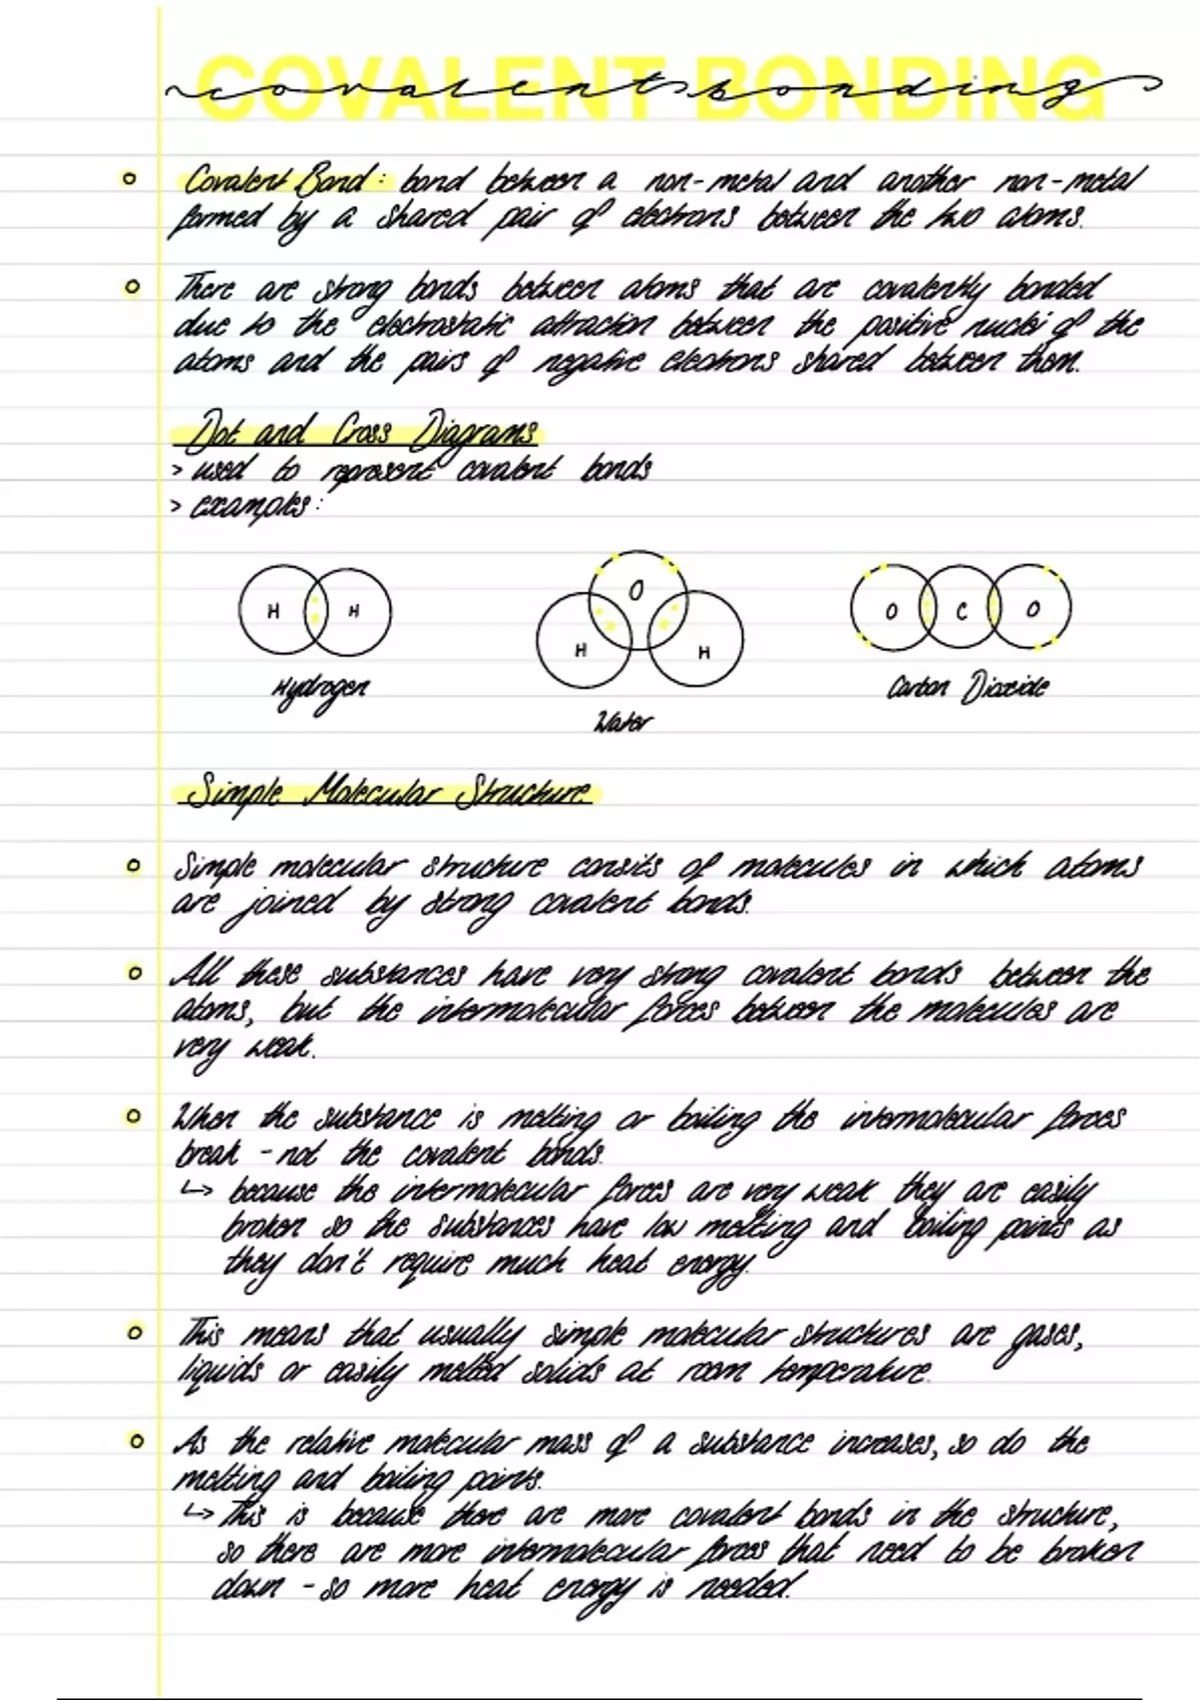 COVALENT BONDING
covalent bonding
Covalent Bond: bond between a non-metal and another non-metal
formed by a shared pair of electrons between the two atoms.
There are strong bonds between atoms that are covalently bonded
due to the electrostatic attraction between the positive nuclei of the
atoms and the pairs of negative electrons shared between them.
Dot and Cross Diagrams
> used to represent covalent bonds
> examples:
H H
O
H H
O C O
Hydrogen
Water
Carbon Dioxide
Simple Molecular Structure
Simple molecular structure consits of molecules in which atoms
are joined by strong covalent bonds.
All these substances have very strong covalent bonds between the
atoms, but the intermolecular forces between the molecules are
very weak.
When the substance is melting or boiling the intermolecular forces
break - not the covalent bonds.
↳ because the intermolecular forces are very weak they are easily
broken so the substances have low melting and boiling points as
they don't require much heat energy.
This means that usually simple molecular structures are gases,
liquids or easily melted solids at room temperature.
As the relative molecular mass of a substance increases, so do the
melting and boiling points.
↳ This is because there are more covalent bonds in the structure,
so there are more intermolecular forces that need to be broken
down - so more heat energy is needed.